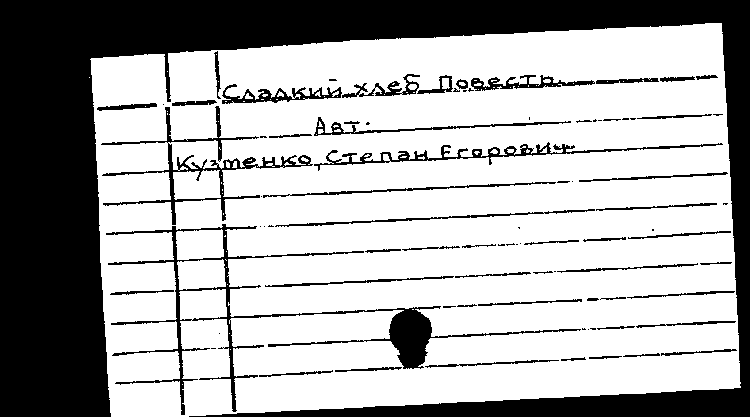 Сладкий хлеб Повесть.
Авт.
Кузменко, Степан Егорович